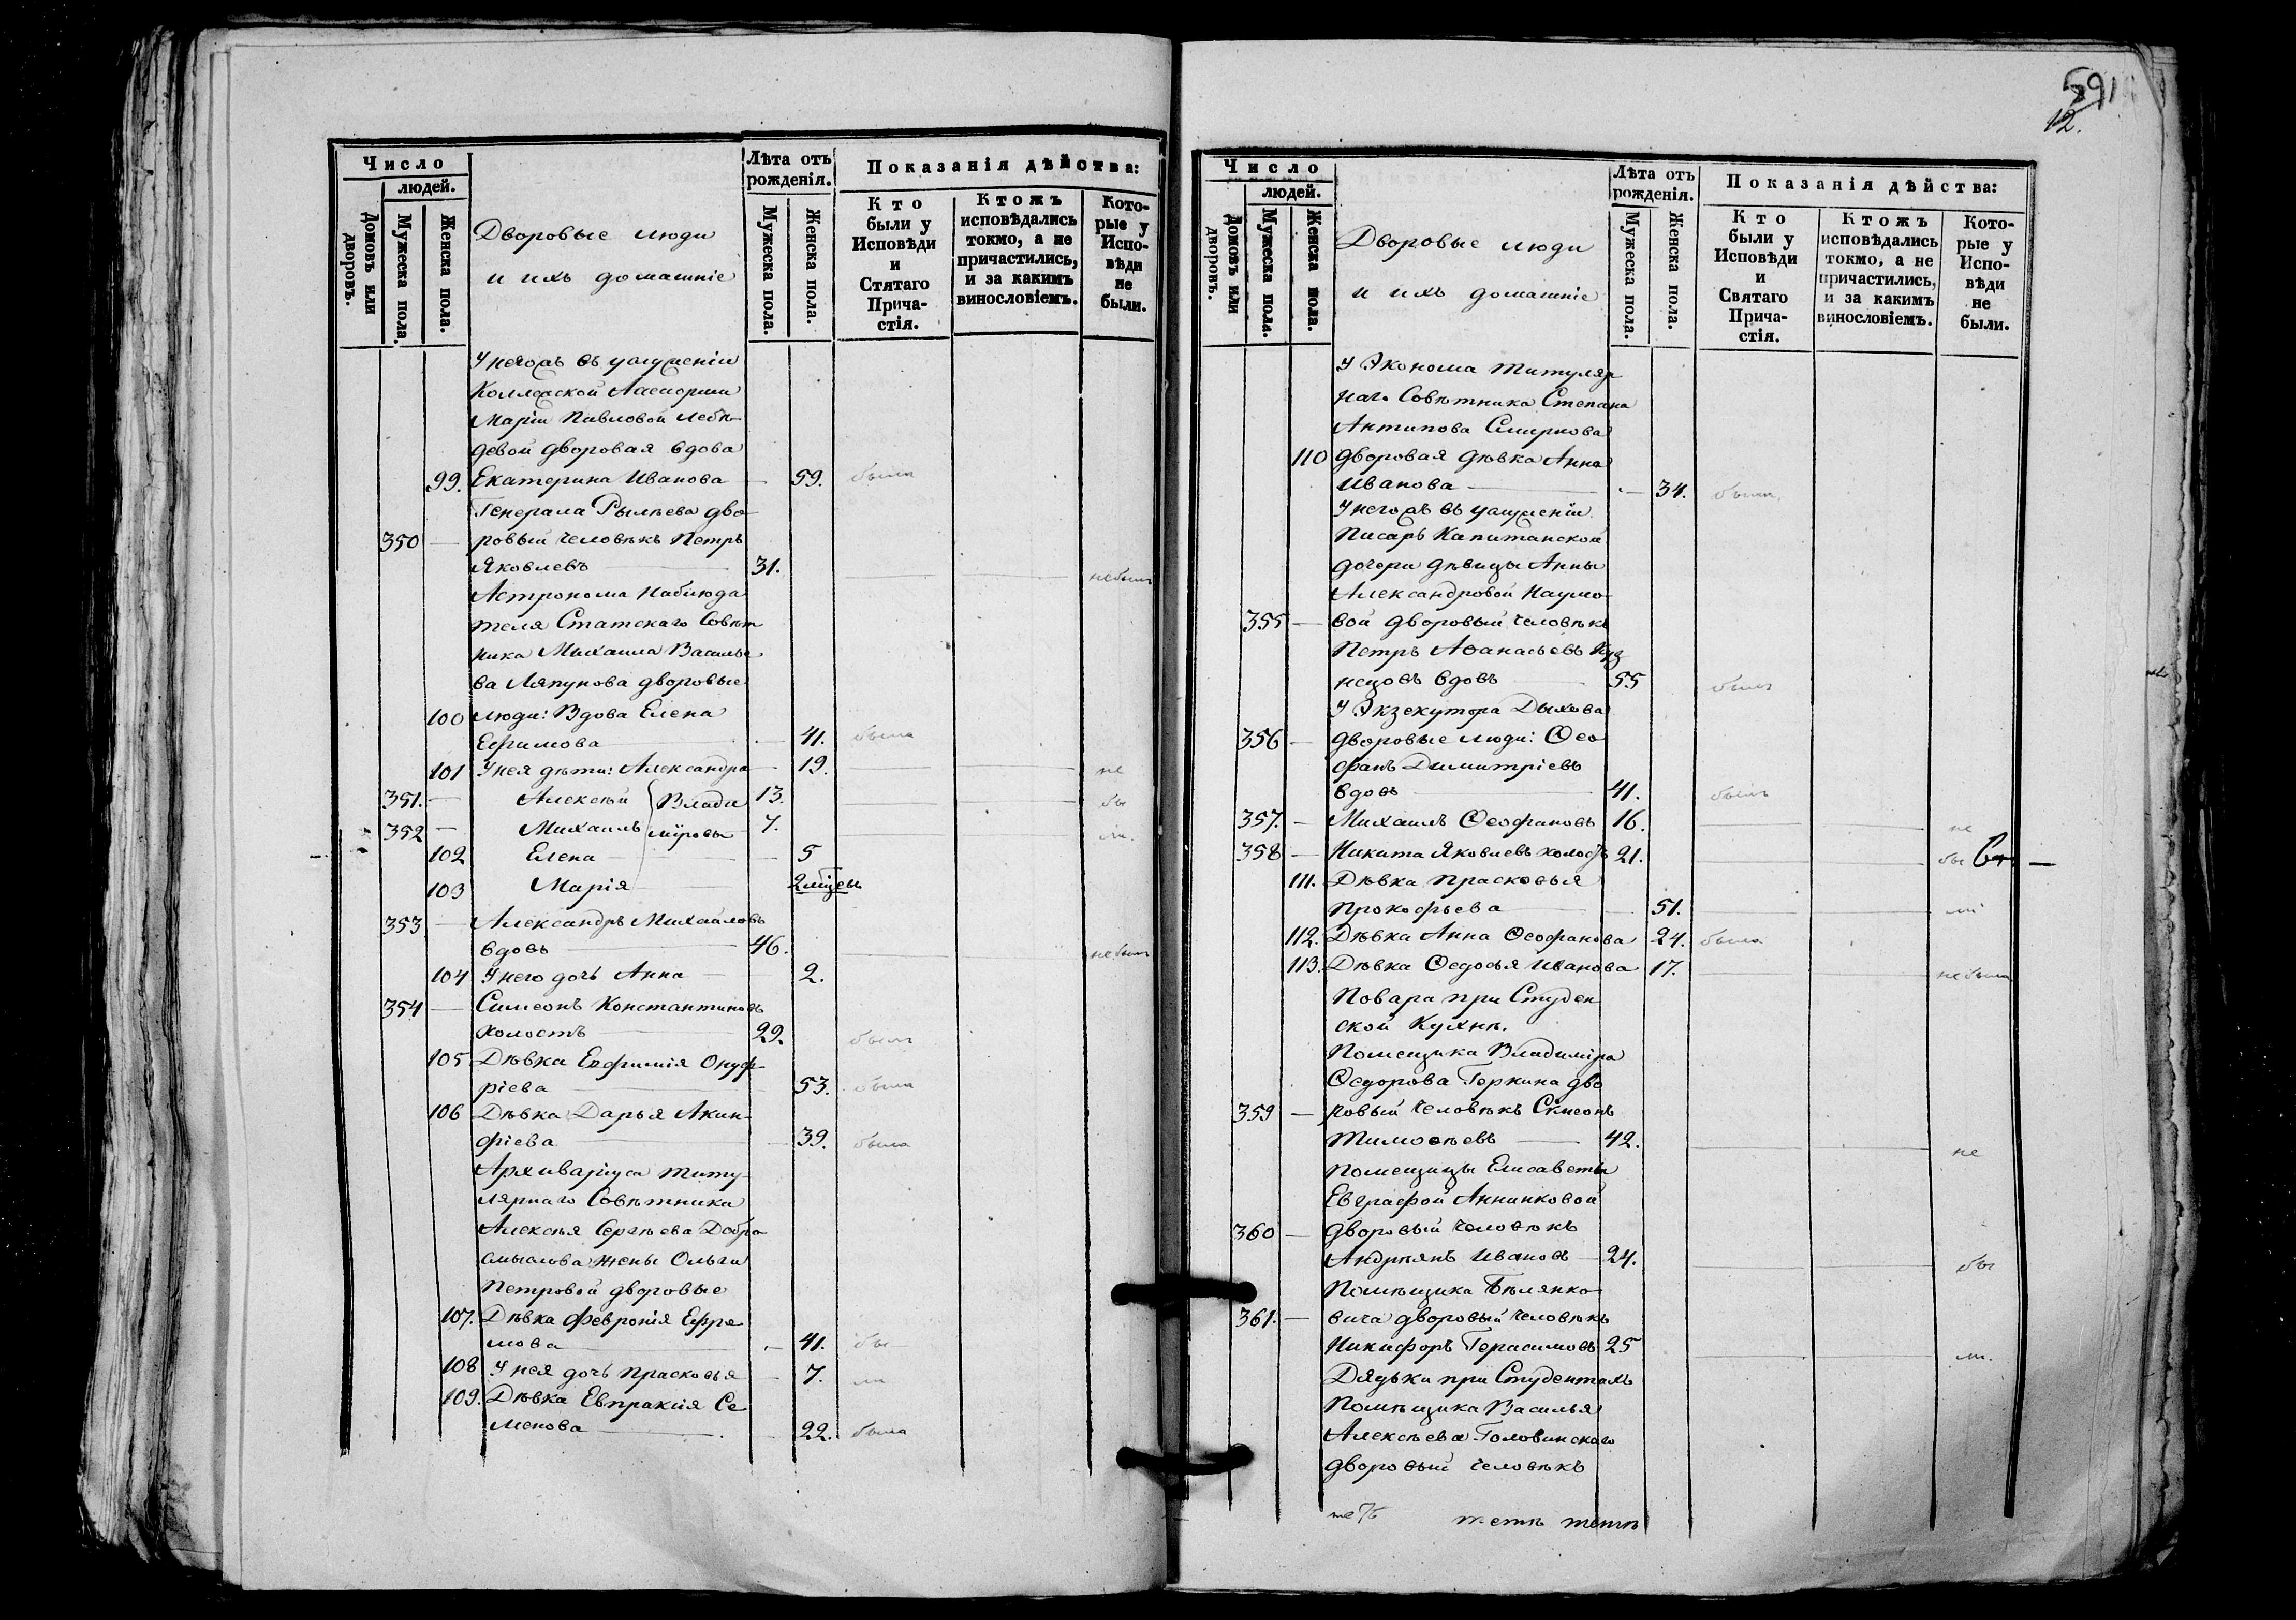 Число
людей.
Домовъ или дворовъ.
Мужеска пола.
Женска пола.
Дворовые люди
и ихъ домашніе
Лѣта отъ рожденія.
Мужеска пола.
Женска пола.
Показанія дѣйства:
Кто были у Исповѣди и Стятаго Прича-стія.
Ктожъ исповѣдались токмо, а не причастились, и за какимъ винословіемъ.
Кото-рые у Испо-вѣди не были.
У негожъ въ услуженіи
Коллежской Ассесорши
Маріи Павловой Лебѣ-
девой дворовая вдова
99. Екатерина Иванова — 59. была
Генерала Рылѣева дво-
350 — ровый человѣкъ Петръ
Яковлевъ 31. небылъ
Астронома Наблюда
теля Статскаго Совѣт
ника Михаила Василье
ва Ляпунова дворовые
100 люди: Вдова Елена
Ефимова — 41. была
101 У нея дѣти: Александра — 19. не
351. — Алексѣй Влади 13. бы
352 — Михаилъ міровы 7. ли.
102 Елена — 5
103 Марія 2 мѣсец
353 — Александръ Михайловъ
вдовъ 46. небылъ
104 У него дочь Анна — 2.
354 — Симеонъ Константиновъ
холостъ 29. былъ
105 Дѣвка Евфимія Онуф-
ріева 53. была
106 Дѣвка Дарья Акин-
фіева — 39. была
Архиваріуса титу-
лярнаго Совѣтника
Алексѣя Сергѣева Добро
смыслова жены Ольги
Петровой дворовые
107. Дѣвка Февронія Ефре
мова — 41. бы
108 У нея дочь Прасковья — 7. ли
109. Дѣвка Евпраксія Се
менова — 22. была
591
12.
Число
людей.
Домовъ или дворовъ.
Мужеска пола.
Женска пола.
Дворовые люди
и ихъ домашніе
Лѣта отъ рожденія.
Мужеска пола.
Женска пола.
Показанія дѣйства:
Кто были у Исповѣди и Святаго Прича-стія.
Ктожъ исповѣдались токмо, а не причастились, и за какимъ винословіемъ.
Кото-рые у Испо-вѣди не были.
У Эконома Титуляр
наго Совѣтника Степана
Антипова Смирнова
110 дворовая дѣвка Анна
Иванова — 34. была
У негожъ въ услуженіи
Писарь Капитанской
дочери дѣвицы Анны
Александровой Наумо
355 — вой дворовый человѣкъ
Петръ Аѳанасьевъ Куз
нецовъ вдовъ 55 былъ
У Экзекутора Дыхова
356 — дворовые люди: Ѳео
фанъ Димитріевъ
вдовъ 41. былъ
357. — Михаилъ Ѳеофановъ 16. не
358 — Никита Яковлевъ холостъ 21. бы
111. Дѣвка Прасковья
Прокофьева 51. ли
112. Дѣвка Анна Ѳеофанова 24. была
113. Дѣвка Ѳедосья Иванова 17. небыла
Повара при Студен
ской Кухнѣ.
Помещика Владиміра
Ѳедорова Горкина дво
359 — ровый человѣкъ Симеонъ
Тимоѳеевъ 42. не
Помещицы Елисаветы
Евграфой Анненковой
360 — дворовый человѣкъ
Андреянъ Ивановъ 24. бы
Помѣщика Бѣлянко
361. — вича дворовый человѣкъ
Никифоръ Герасимовъ 25 ли.
Дядьки при Студентахъ
Помѣщика Василья
Алексѣева Головинскаго
дворовый человѣкъ